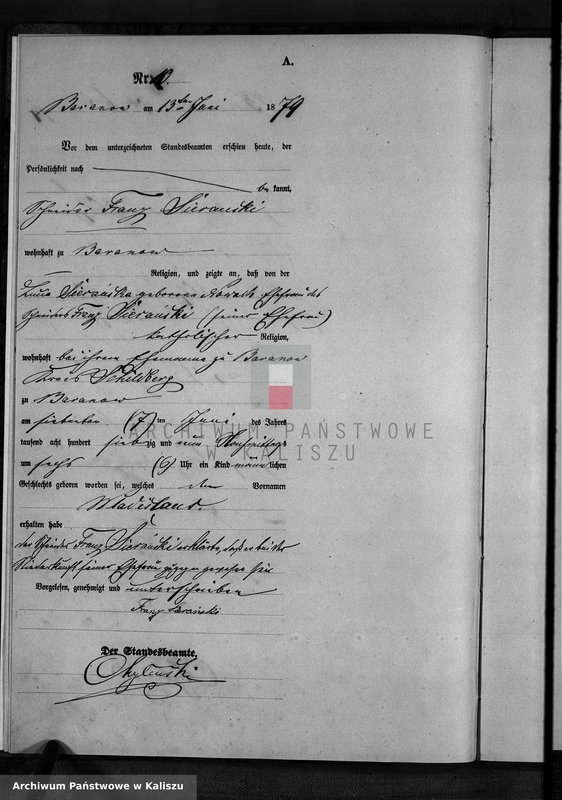 A.
Nr.
Baranow am 13ten Juni 1879
Vor dem unterzeichneten Standesbeamten erschien heute, der
Persönlichkeit nach
be kannt,
Schneider Franz Sieranski
wohnhaft zu Baranow
Religion, und zeigte an, daß von der
Sieranska geborene Nowak Ehefrau des
Schneiders Franz Sieranski (seiner Ehefrau)
katholischer Religion,
wohnhaft bei ihrem Ehemanne zu Baranow
Kreis Schildberg
zu Baranow
am siebenten (7) ten Juni des Jahres
tausend acht hundert sieb zig und neun Nachmittags
um sechs (6) Uhr ein Kind männlichen
Geschlechts geboren worden sei, welches den Vornamen
Wladislaus.
erhalten habe
der Schneider Franz Sieranski erklärte, daß er bei der
Niederkunft seiner Ehefrau zugegen gewesen sei
Vorgelesen, genehmigt und unterschrieben
Franz
Der Standesbeamte.
ARCHIWUM PAŃSTWOWE
W KALISZU
Archiwum Państwowe w Kaliszu